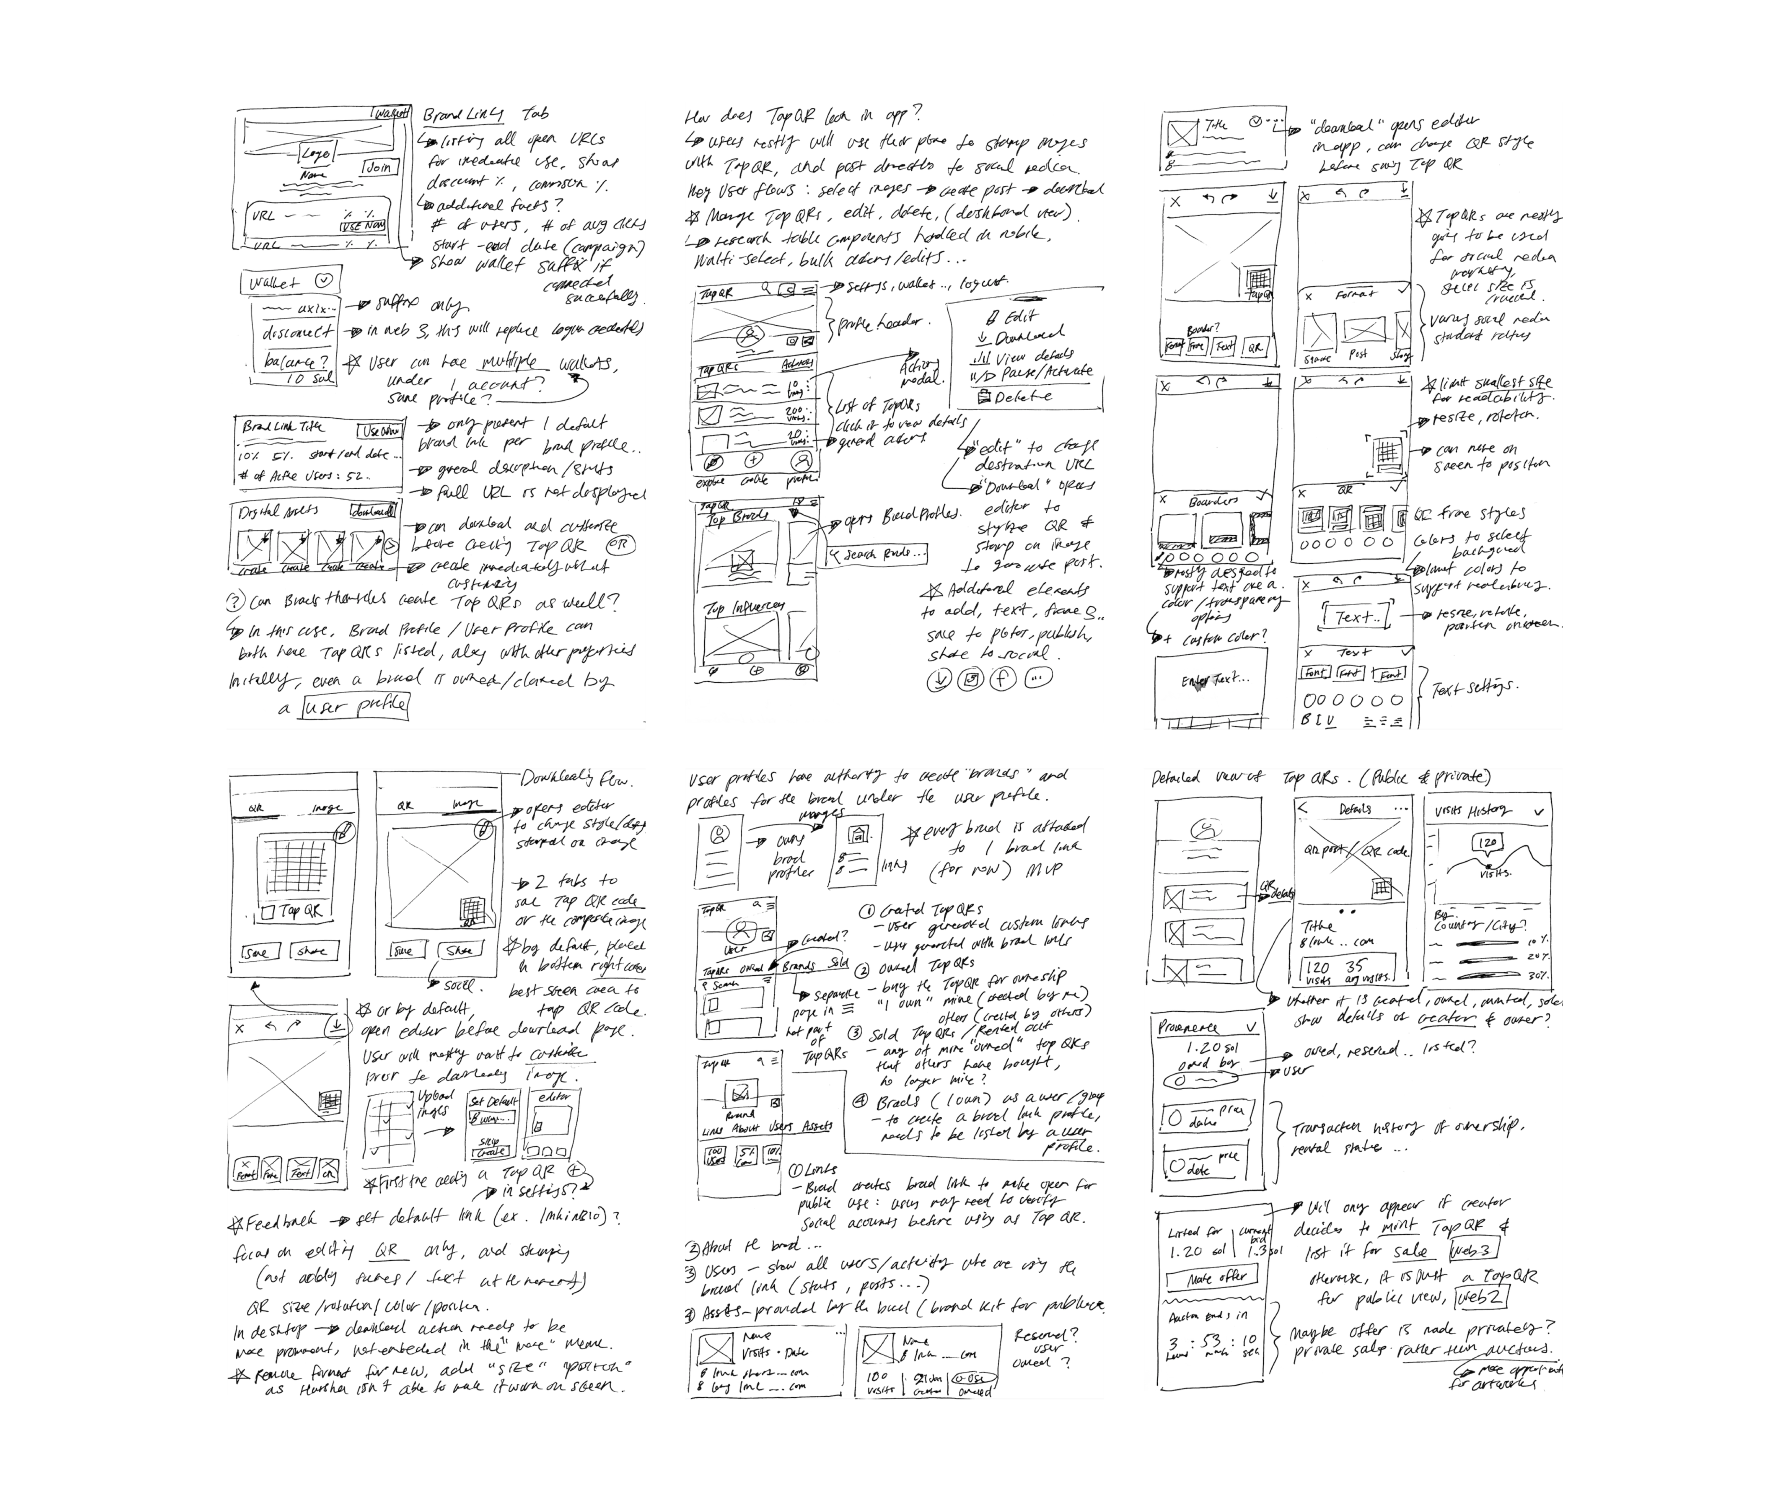 Wallet
Logo
Name
Join
URL
% %
USE NOW
URL % %
Brand Links Tab
listing all open URLs
for immediate use, show
discount %, commision %.
additional facts?
# of users, # of avg clicks
start - end date (campaign)
show wallet suffix if
connected
successfully.
Wallet
suffix only
disconnect
in web 3, this will replace login credentials
balance?
10 Sol
User can have multiple wallets,
under 1 account?
same profile?
Brand Link Title
Use Now
10% 5% start/end date...
# of Active Users: 52.
only present 1 default
brand link per brand profile..
general description/stats
full URL is not displayed
Digital Assets
download
create create create create
can download and customize
before creating Tap QR
OR
create immediately without
customizing
? Can Brands themselves create Tap QRs as well?
In this case, Brand Profile / User Profile can
both have Tap QRs listed, along with other properties
Initially, even a brand is owned/claimed by
a user profile
How does Tap QR look in app?
users mostly will use their phone to stamp images
with Tap QR, and post directly to social media.
Key User flows: select images → create post → download
Manage Tap QRs, edit, delete, (dashboard view).
research table components handled in mobile,
multi-select, bulk actions/edits...
Tap QR
settings, wallet.., logout.
profile header.
Tap QRs
Actions
200
20
List of Tap QRs
click it to view details
general actions
explore create profile
Action
modal.
Edit
Download
View details
Pause/Activate
Delete
"edit" to change
destination URL
"Download" opens
editor to
stylize QR &
stamp on image
to generate post.
Tap QR
Top Brands
opens Brand Profiles.
Search Brands...
Top Influencers
Additional elements
to add, text, frames..
save to photos, publish,
share to social.
Title
"download" opens editor
in app, can change QR style
before saving Tap QR
Tap QR
Boarder?
Format Frame Text QR
Tap QRs are mostly
going to be used
for social media
marketing,
select size is
crucial.
Format
Square Post Story
various social media
standard ratios
limit smallest size
for readability.
resize, rotation.
can move on
screen to position
Boarders
mostly designed to
support text area
color/transparency
options
+ custom color?
QR
QR frame styles
colors to select
background
limit colors to
support readability.
Text..
resize, rotate,
position onscreen.
Enter Text...
Text
Font Font Font
B I U
Text settings.
Downloading flow.
QR Image
Tap QR
Save Share
QR Image
Save Share
social.
opens editor
to change style/design
stamped on image
2 tabs to
save Tap QR code
or the composite image
by default, placed
in bottom right corner
best seen area to
tap QR code.
or by default,
open editor before download page.
User will mostly want to customize
prior to downloading image.
Format Frame Text QR
Upload
images
Set Default
Skip
Create
editor
First time creating a Tap QR
in settings?
Feedback → set default link (ex. linkinbio)?
focus on editing QR only, and stamping
(not adding frames / text at the moment)
QR size/rotation/color/position.
In desktop → download action needs to be
more prominent, not embedded in the "more" menu.
Remove format for now, add "size" "position"
as Harshan isn't able to make it work on screen.
User profiles have authority to create "brands" and
profiles for the brand under the user profile.
manages
owns
brand
profiles
links
every brand is attached
to 1 brand link
(for now) MVP
Tap QR
User
Tap QRs Owned Brands Sold
Search
Created?
separate
page in
not part
of
Tap QRs
① Created Tap QRs
- user generated custom links
- user generated with brand links
② Owned Tap QRs
- buy the Tap QR for ownership
"I own" mine (created by me)
others (created by others)
③ Sold Tap QRs / Rented out
- any of mine "owned" tap QRs
that others have bought,
no longer mine?
④ Brands (I own) as a user/group
- to create a brand link profile,
needs to be listed by a user
profile.
Tap QR
Brand
Links About Users Assets
100
Users
5%
10%
① Links
- Brand creates brand link to make open for
public use: users may need to verify
social accounts before using as Tap QR.
② About the brand...
③ Users - show all users/activity who are using the
brand link (stats, posts...)
④ Assets - provided by the brand (brand kit for publicize.
Name
Visits · Date
short....com
long link....com
Name
link....com
100
visits
owned
Reserved?
user
owned?
Detailed view of Tap QRs. (Public & private)
QR
details
Details
QR post / QR code
Title
link..com
120
visits
35
avg visits.
Visits History
120
visits.
By:
Country/City?
10%
20%
30%
whether it is created, owned, minted, sold.
show details of creator & owner?
Provenence
1.20 sol
owned by
owned, reserved... listed?
user
price
date
price
date
Transaction history of ownership,
rental status...
Listed for
1.20 sol
current
bid
1.3 sol
Make offer
Auction ends in
3 : 53 : 10
hours mins sec
Will only appear if creator
decides to mint Tap QR &
list it for sale web3
otherwise, it is just a Tap QR
for public view, web2
Maybe offer is made privately?
private sales rather than auctions.
more opportunities
for artworks